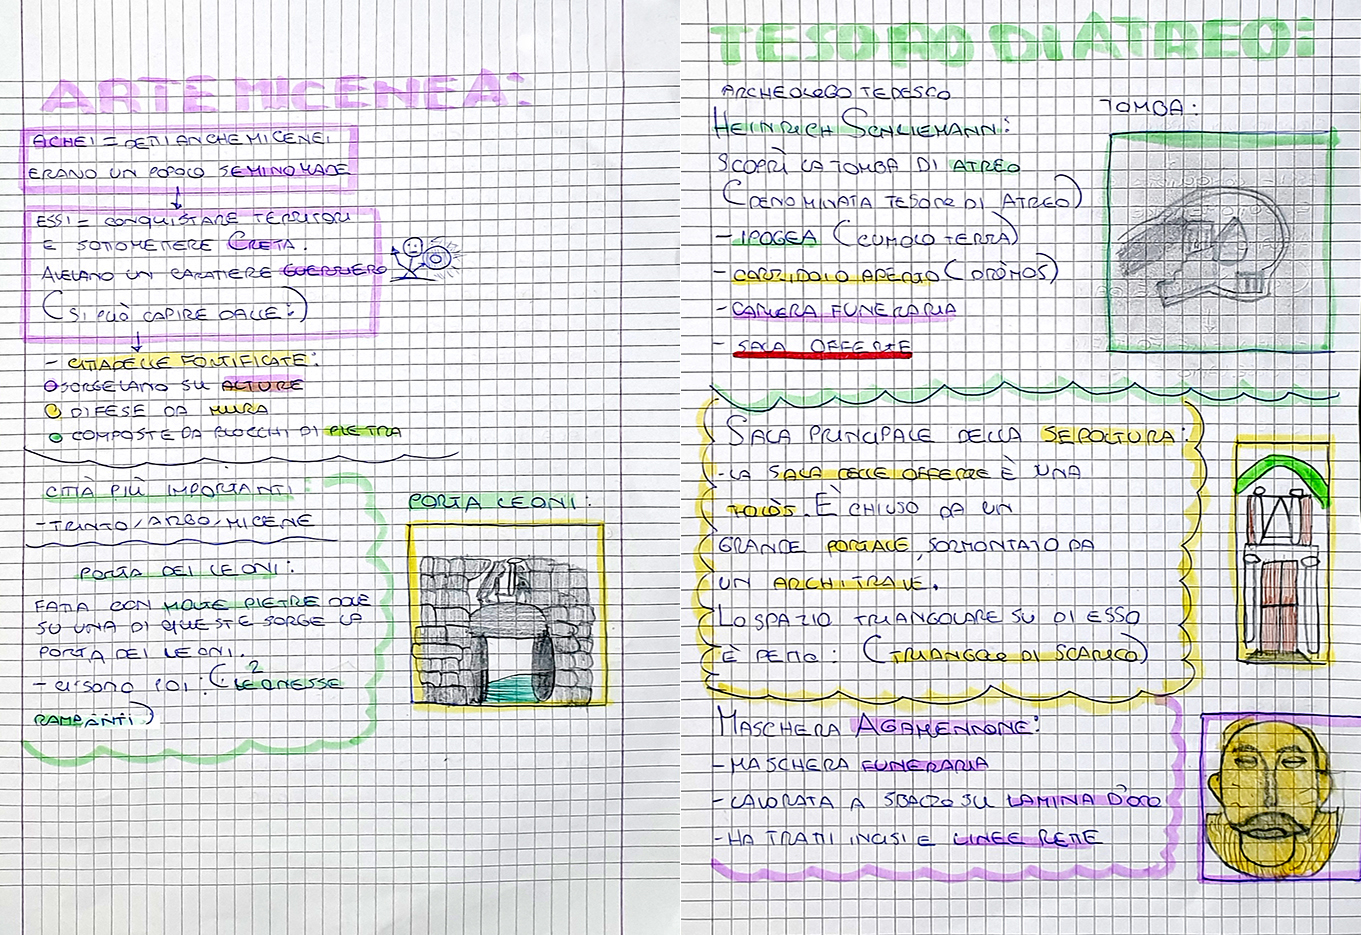 ARTE MICENEA:
ACHEI = DETTI ANCHE MICENEI
ERANO UN POPOLO SEMINOMADE
ESSI = CONQUISTARE TERRITORI
E SOTTOMETTERE CRETA.
AVEVANO UN CARATTERE GUERRIERO
(SI PUÒ CAPIRE DALLE:)
- CITTADELLE FORTIFICATE:
SORGEVANO SU ALTURE
DIFESE DA MURA
COMPOSTE DA BLOCCHI DI PIETRA
CITTÀ PIÙ IMPORTANTI:
- TIRINTO/ARGO/MICENE
PORTA DEI LEONI:
FATTA CON MOLTE PIETRE DOVE
SU UNA DI QUESTE SORGE LA
PORTA DEI LEONI.
- CI SONO POI: (2 LEONESSE
RAMPANTI)
PORTA LEONI:
TESORO DI ATREO:
ARCHEOLOGO TEDESCO
HEINRICH SCHLIEMANN:
SCOPRÌ LA TOMBA DI ATREO
(DENOMINATA TESORO DI ATREO)
- IPOGEA (CUMOLO TERRA)
- CORRIDOIO APERTO (DRÒMOS)
- CAMERA FUNERARIA
- SALA OFFERTE
TOMBA:
SALA PRINCIPALE DELLA SEPOLTURA:
- LA SALA DELLE OFFERTE È UNA
THOLÒS. È CHIUSO DA UN
GRANDE PORTALE, SORMONTATO DA
UN ARCHITRAVE.
LO SPAZIO TRIANGOLARE SU DI ESSO
È DETTO: (TRIANGOLO DI SCARICO)
MASCHERA AGAMENNONE:
- MASCHERA FUNERARIA
- LAVORATA A SBALZO SU LAMINA D'ORO
- HA TRATTI INCISI E LINEE RETTE